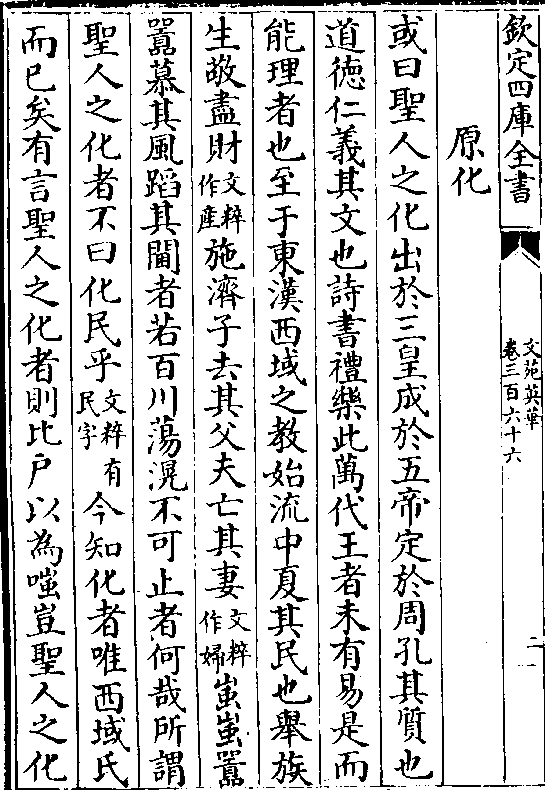 欽定四庫全書
文苑英華
卷三百六十六
二
原化
或曰聖人之化出於三皇成於五帝定於周孔其質也
道徳仁義其文也詩書禮樂此萬代王者未有易是而
能理者也至于東漢西域之教始流中夏其民也舉族
生敬盡財文粹作産施濟子去其父夫亡其妻文粹作婦蚩蚩嚚
嚚慕其風蹈其閫者若百川蕩滉不可止者何哉所謂
聖人之化者不曰化民乎文粹有民字今知化者唯西域氏
而已矣有言聖人之化者則比户以為嗤豈聖人之化